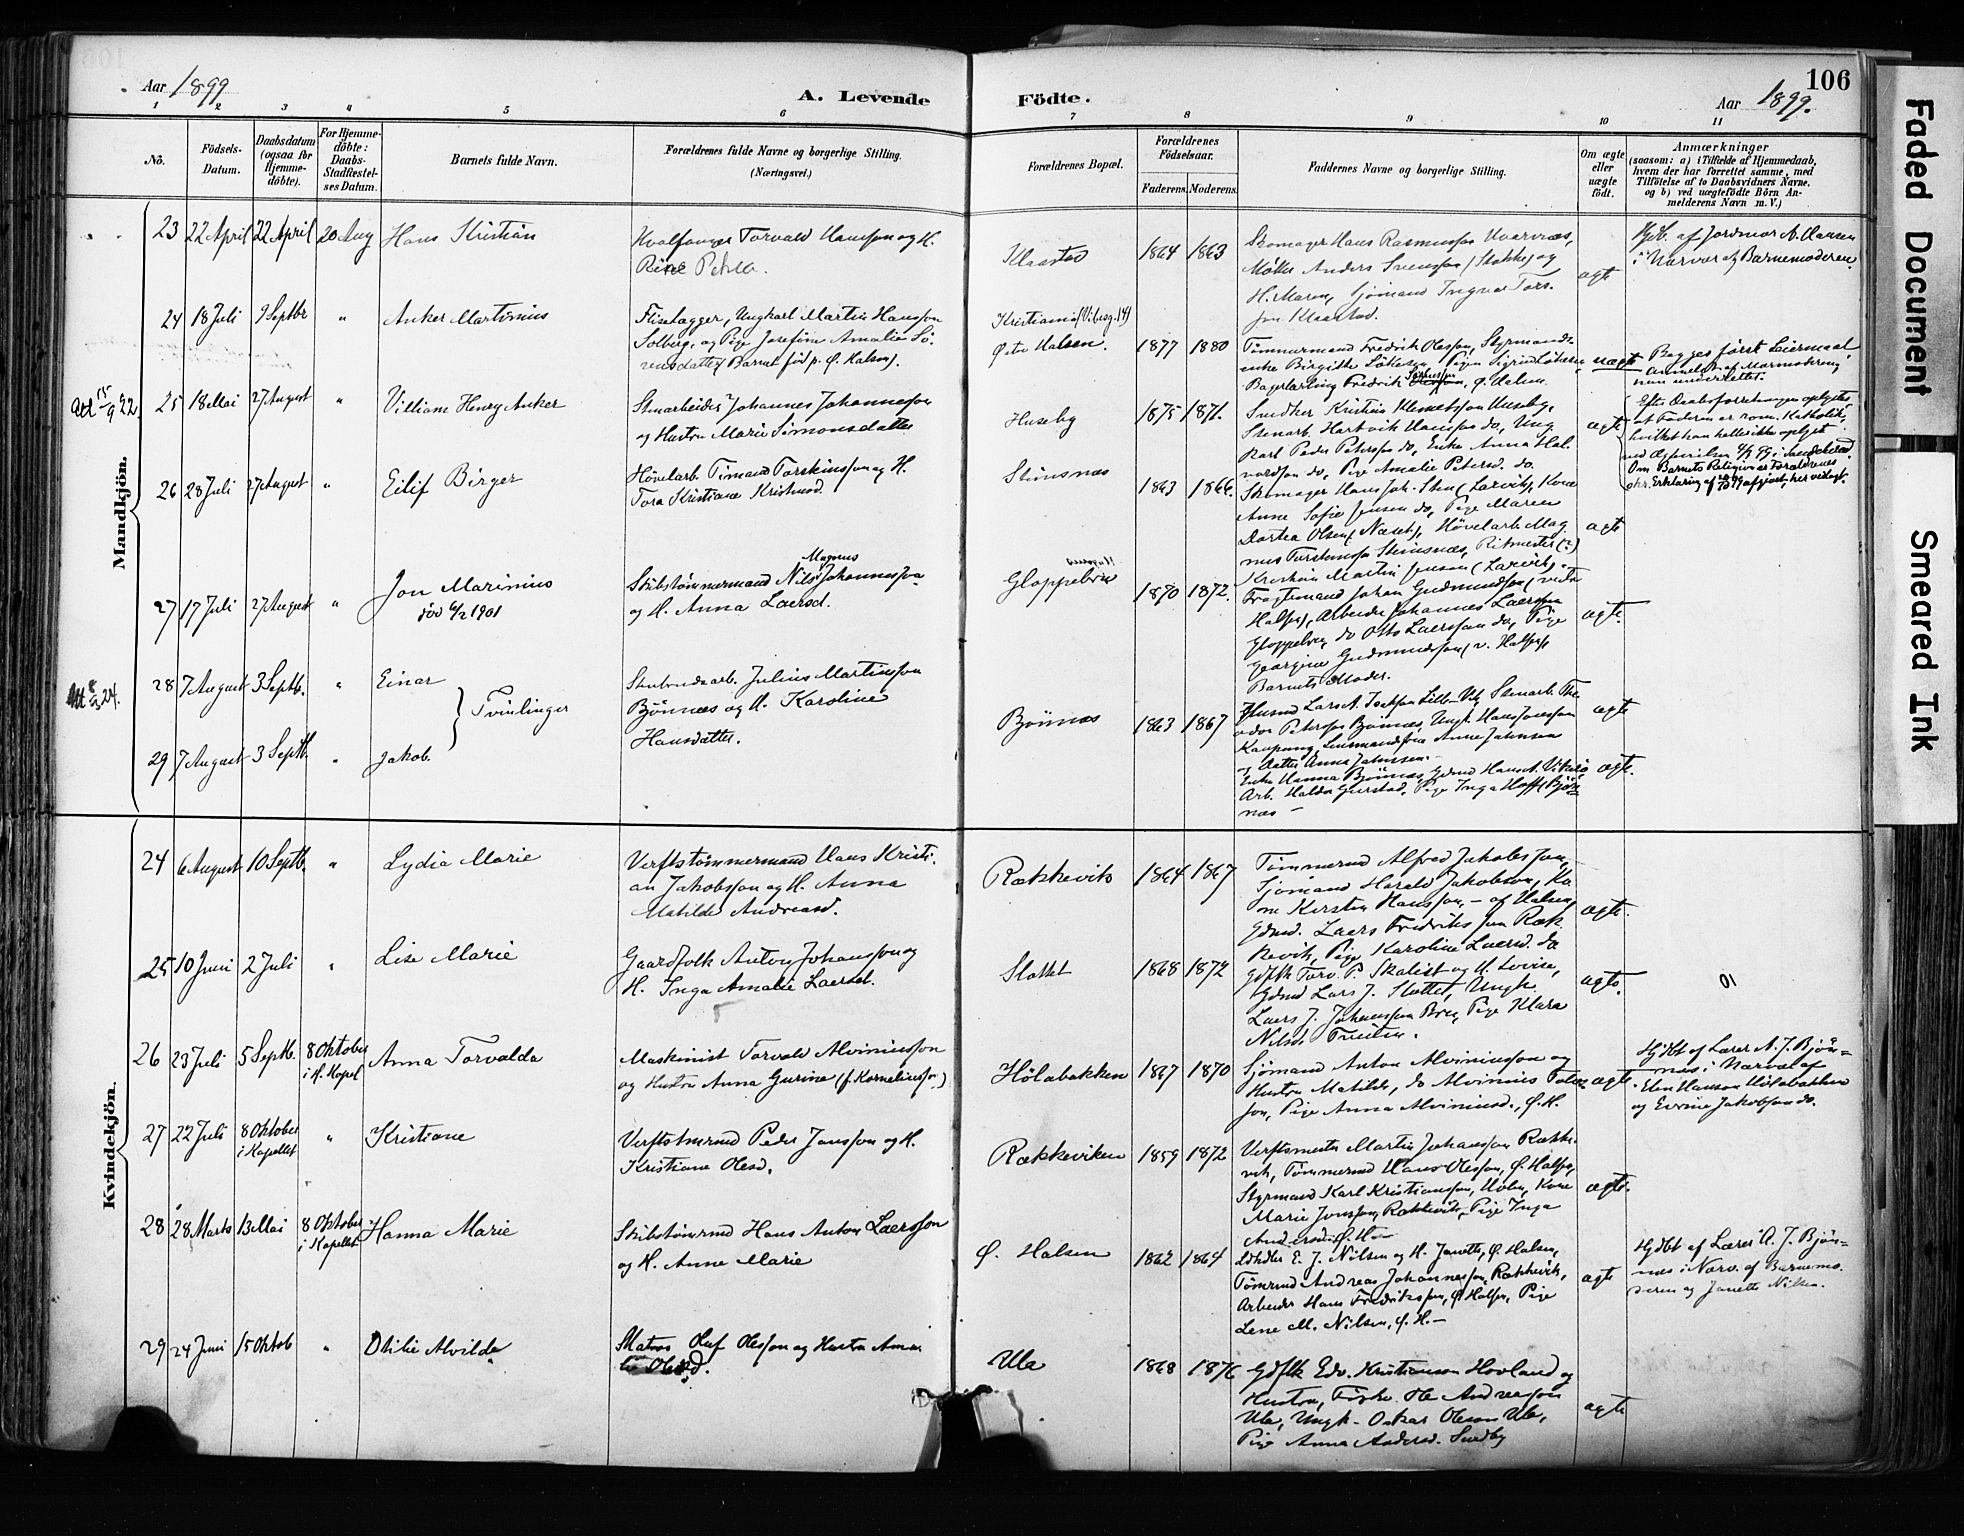 Aar 1899
A. Levende
Födte.
Aar 1899.
106
1 2 3 4 5 6 7 8 9 10 11
No.
Födsels-
Datum.
Daabsdatum
(ogsaa for
Hjemme-
döbte).
For Hjemme-
döbte:
Daabs-
Stadfæstel-
ses Datum.
Barnets fulde Navn.
Forældrenes fulde Navne og borgerlige Stilling.
(Næringsvei.)
Forældrenes Bopæl.
Forældrenes
Födselsaar.
Faderens. Moderens.
Faddernes Navne og borgerlige Stilling.
Om ægte
eller
uægte
födt.
Anmærkninger
(saasom: a) i Tilfælde af Hjemmedaab,
hvem der har forrettet samme, med
Tilföielse af to Daabsvidners Navne.
og b) ved uægtefödte Börn An-
melderens Navn m. V.)
Mandkjön.
23 22 April 22 April 20 Aug Hans Kristian
Hvalfanger Torvald Hansson og H.
Klaastad 1864 1863
Skomager Hans Rasmussen
Anders Svensson (Stokke) og
H. Maren, Sjömand Ingvar Tors-
son Klaastad.
ægte
Hjdb. af Jordmor A. Hansen
i Nærvær af Barnemoderen.
24 18 Juli 9 Septbr " Anker Martinius
Fliselægger, Ungkarl Martin Hansson
Solberg, og Pige Josefine Amalie Sö-
rensdatter (Barnet född p. Ö. Halsen).
Kristiania (Vibesg. 14)
Östre Halsen. 1877 1880
Tömmermand Fredrik Olesson, Styrmands-
enke Birgitte Lökesen, Pigen Sigrid Lökesen,
Bagerlærling Fredrik Ö. Halsen
uægte
Begges förste Leiermaal
25 18 Mai 27 August " Villiam Henry Anker
Att 15/9 22
Stenarbeider Johannes Johannesson
og Hustru Marie Simonsdatter
Huseby 1875 1871.
Snedker Kristian Klemetsson Huseby,
Stenarb. Hartvik Hansson do, Ung.
Karl Peder Petersson do, Enke Anna Hal-
vordsen do, Pige Amalie Petersd. do.
ægte
Efter Daabsforretningen oplystes,
at Faderen er rom. Katholik,
hvilket han heller ikke oplyst
Om Barnets Religion er Forældrenes
26 28 Juli 27 August " Eilif Birger
Hövelarb. Timand Torskinsson og H.
Tora Kristiane Kristensd.
Steinsnæs 1863 1866.
Skomager Hans Joh. Sten (Larvik), Kone
Anne Sofie Jensen do, Pige Maren
Dortea Olsen (Næset), Hövelarb. Mag-
nus Torstensson Steinsnæs, Ritmester (?)
Kristian Martin Jensen (Larvik).
ægte
27 17 Juli 27 August " Jon Marinius
död 6/2 1901
Skibstömmermand Nils Magnus Johannesson
og H. Anna Laersd.
Gloppebro 1870 1872.
Fragtemand Johan Gudmundson (vestre
Halsen), Arbeider Johannes Laersson
Gloppebro, do Otto Laersson do, Pige
Georgine Gudmundson (v. Halsen),
Barnets Moder.
ægte.
28 7 August 3 Septb. " Einar
Att 24.
Tvillinger
Julius Martinsson
Björnnæs og H. Karoline
Hansdatter.
Björnnæs 1863 1867
Husmd Lars A. Isaksson Lille-Vik, Stenarb. The-
odor Petersson Björnnæs, Ungk. Hans Jonasson
Kaupang, Lensmandsfrue Anne Jahnsen
og Datter Anna Jahnsen.
ægte
29 7 August 3 Septb. " Jakob.
Enke Hanna Björnnæs, Gdmd Hans A. Viksiö,
Arb. Haldor Gurstad, Pige Inga Hoff (Björn-
næs —
ægte.
Kvindekjön.
24 6 August 10 Septb. " Lydia Marie
Verftstömmermand Hans Kristi-
an Jakobsson og H. Anna
Matilde Andreasd.
Rækkevik 1864 1867
Tömmermd Alfred Jakobsson,
Sjömand Harald Jakobsson, Ko-
ne Kirsten Hansson, — af Halsen,
Gdmd. Laers Fredriksson Ræk-
kevik, Pige Karoline Laersd. do
ægte.
25 10 Juni 2 Juli " Lise Marie
Gaardfolk Anton Johansson og
H. Inga Amalie Laersd.
Slottet 1868 1872
Gdflk Torv. P. Skalist og H. Lovise,
Gdmd Lars J. Slottet, Ungk.
Laers J. Johansson Bro, Pige Klara
ægte.
26 23 Juli 5 Septb. 8 Oktober
i H. Kapel
Anna Torvalda
Maskinist Torvald Alviniusson
og Hustru Anna Gurine (f. Korneliusson)
Hölabakken 1867 1870
Sjömand Anton Alviniusson og
Hustru Matilde, do Alvinius
Pige Anna Alviniusd., Ö. H.
ægte
Hjdbt af Lærer A. J. Björn-
næs i Nærvær af
Elen Hanson Hölabakken
og Evrine Jakobson do.
27 22 Juli 8 Oktober
i Kapellet
" Kristiane
Verftstmrmd Peder Jonsson og H.
Kristiane Olesd.
Rækkeviken 1859 1872
Verftsmester Martin Johansson Række-
vik, Tömmermd Hans Olesson, Ö. Halsen,
Styrmand Karl Kristiansson, Ö. H., Kone
Marie Jonsson, Rækkevik, Pige Inga
Andersd. Ö. H. —
ægte.
28 28 Marts 13 Mai 8 Oktober
i Kapellet
Hanna Marie
Skibstömrmd Hans Anton Laersson
og H. Anne Marie
Ö. Halsen 1862 1864
Ldhdler E. J. Nilsen og H. Janette, Ö. Halsen,
Tömrmd Andreas Johannesson, Rækkevik,
Arbeider Hans Fredriksson, Ö. Halsen, Pige
Lene M. Nilsen, Ö. H. —
ægte
Hjdbt af Lærer A. J. Björn-
næs i Nærv. af Barnemo-
deren og Janette Nilsen.
29 24 Juni 15 Oktob " Otilie Alvilde
Matros Oluf Olesson og Hustru
Olesd.
Ula 1868 1876
Gdflk Edv. Kristianson Hovland og
Hustru, Fisker Ole Andreasson
Ula, Ungk. Oskar Oleson Ula,
Pige Anna Andersd. Sundby
ægte
Faded Document
Smeared Ink